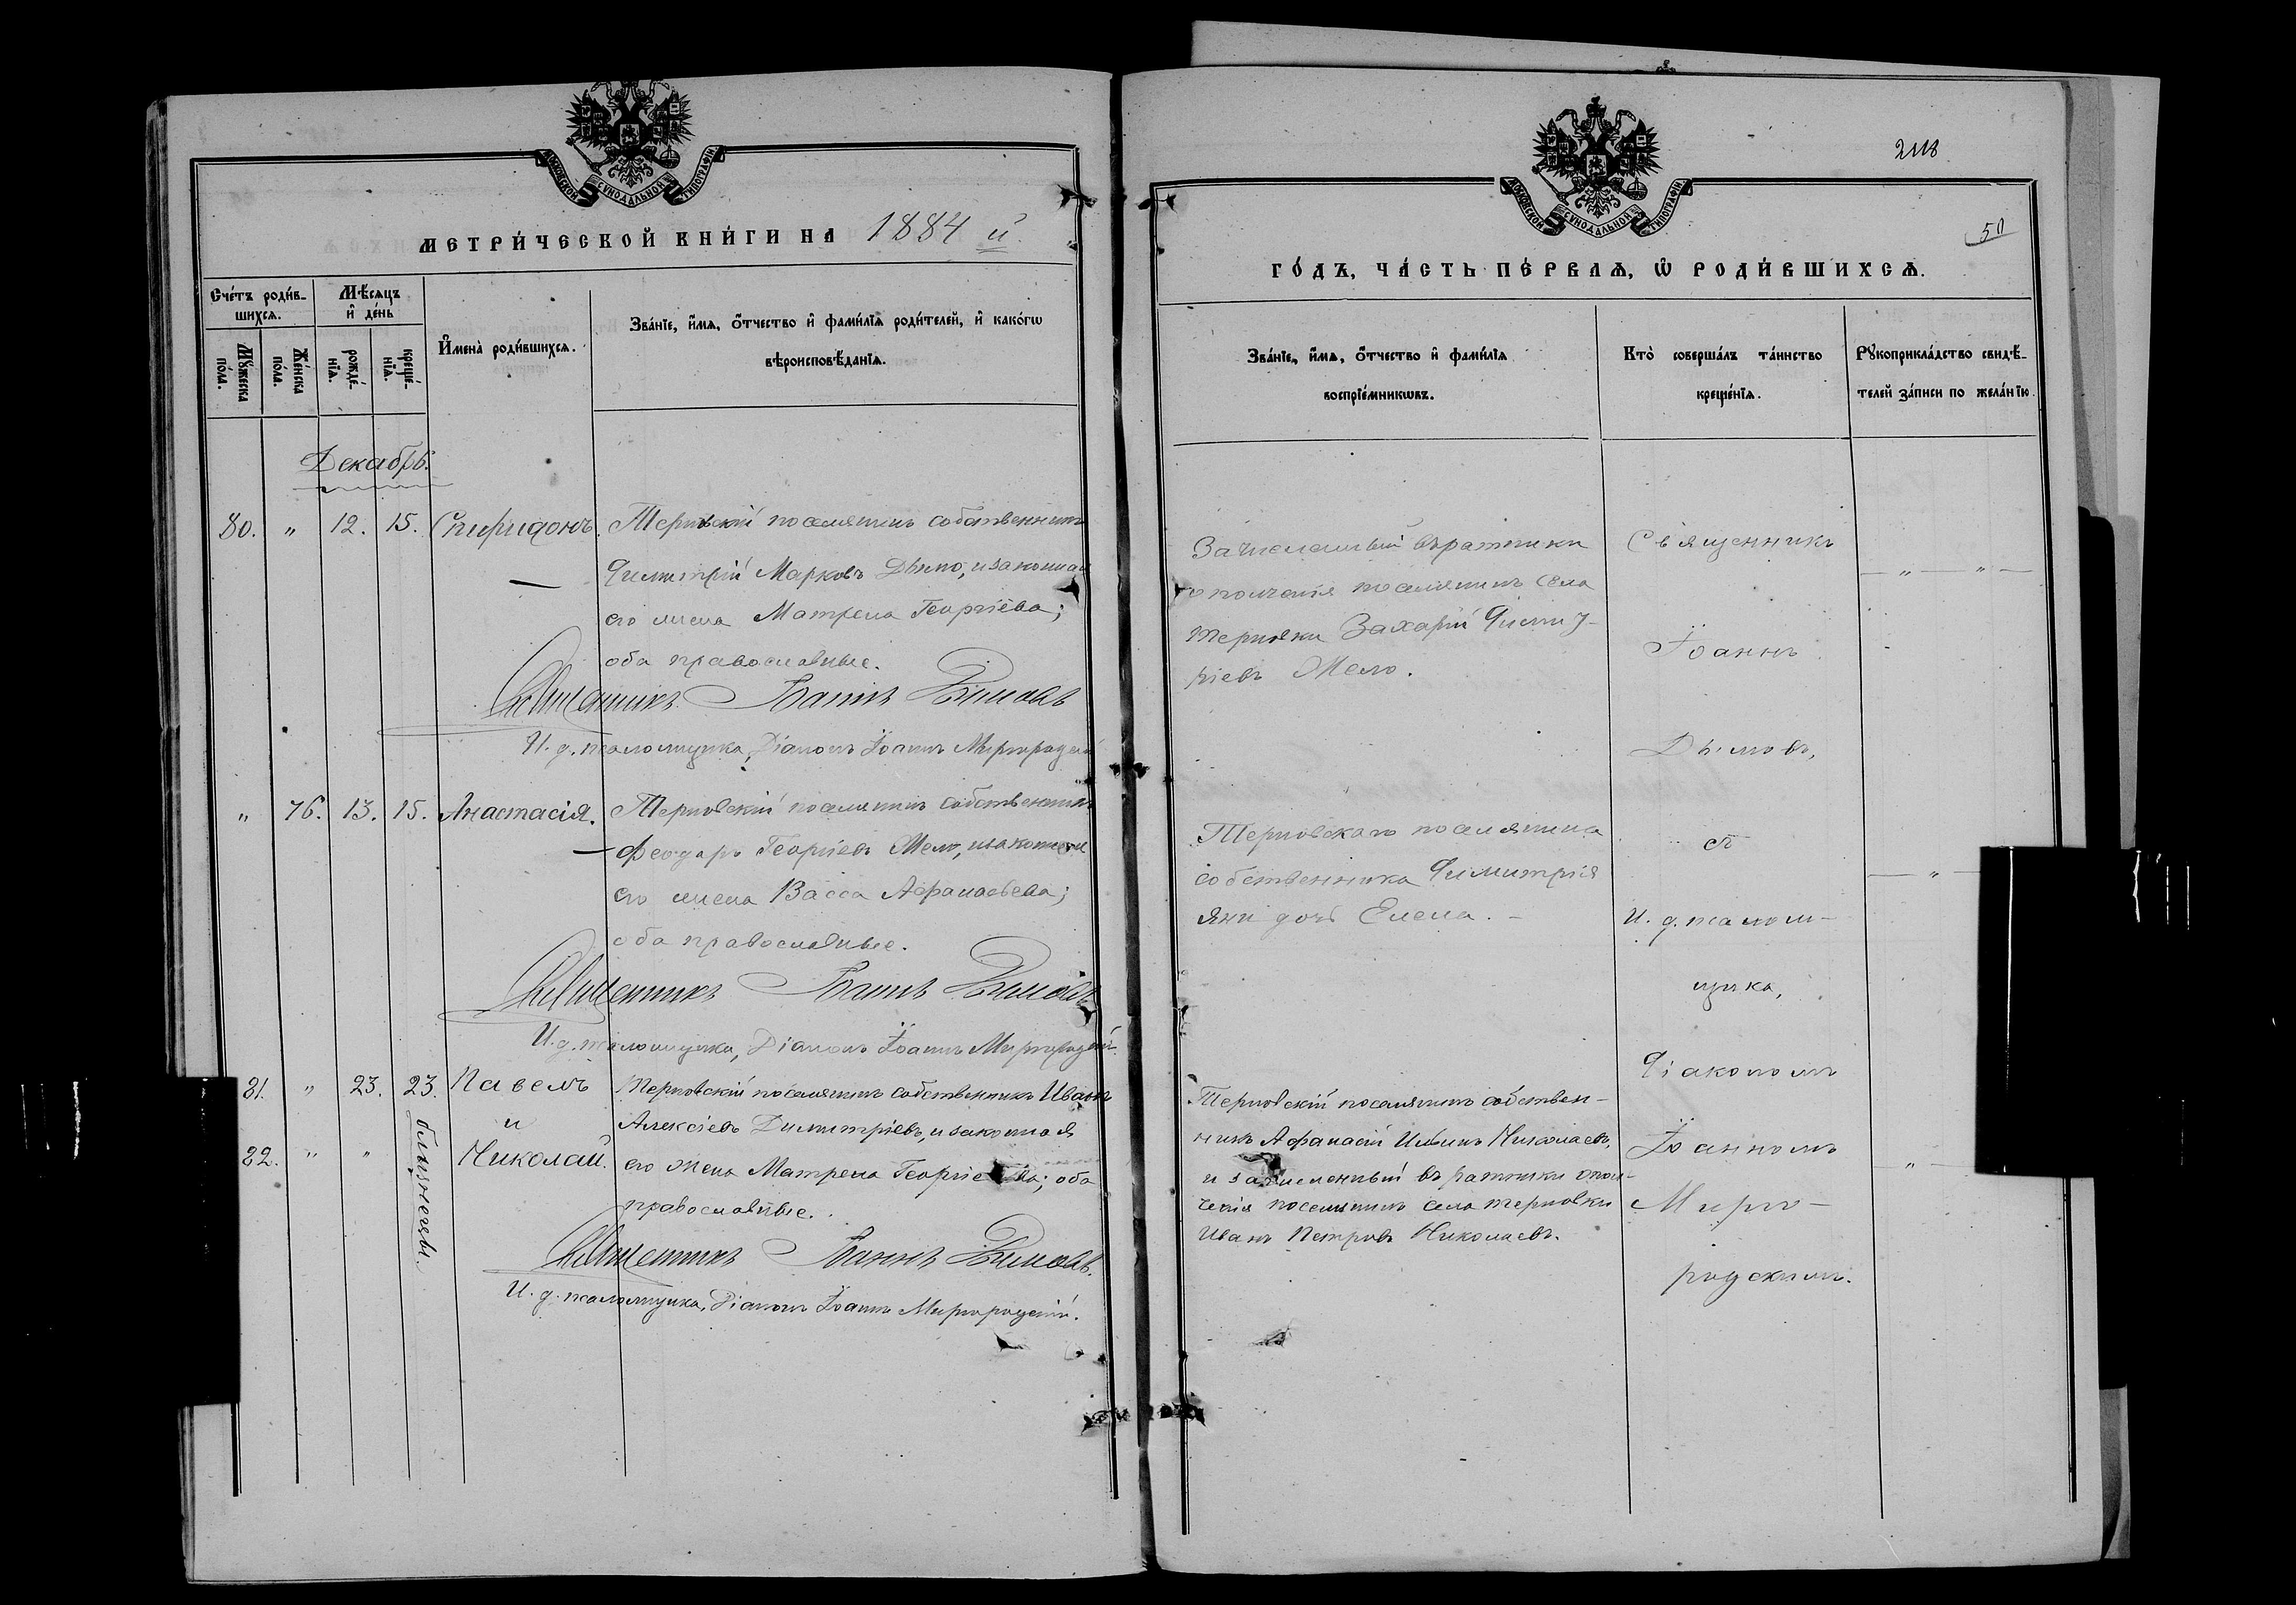 МОСКОВСКОЙ СѴНОДАЛЬНОЙ ТИПОГРАФІИ
МЕТРИ́ЧЕСКОЙ КНИ́ГИ НА 1884 й.
Сче́тъ роди́в-
шихсѧ.
Мѣ́сѧцъ
и҆ де́нь
Мꙋ́жеска
по́ла.
Же́нска
по́ла.
рожде́-
нїѧ.
креще́-
нїѧ.
И҆мена̀ роди́вшихсѧ.
Зва́нїе, и҆́мѧ, ѻ҆́тчество и҆ фами́лїѧ роди́телей, и҆ како́гѡ
вѣроисповѣ́данїѧ.
Декабрь.
80. " 12. 15. Спиридонъ. Терновскій поселянинъ собственникъ
Димитрій Марковъ Дѣмо, и законная
его жена Матрена Георгіева;
оба православные.
Священникъ Іоаннъ Дымовъ
И. д. псаломщика, Діаконъ Іоаннъ Миргородскій
" 76. 13. 15. Анастасія. Терновскій поселянинъ собственникъ
Феодоръ Георгіевъ Мело, и законная
его жена Васса Афанасьева;
оба православные.
Священникъ Іоаннъ Дымовъ
И. д. псаломщика, Діаконъ Іоаннъ Миргородскій.
81. " 23. 23. Павелъ Терновскій поселянинъ собственникъ Иванъ
и Алексіевъ Димитріевъ, и законная
82. " " близнецы. Николай. его жена Матрена Георгіева; оба
православные.
Священникъ Іоаннъ Дымовъ.
И. д. псаломщика, Діаконъ Іоаннъ Миргородскій.
МОСКОВСКОЙ СѴНОДАЛЬНОЙ ТИПОГРАФІИ
50
ГО́ДЪ, ЧА́СТЬ ПЕ́РВАѦ, Ѡ҆ РОДИ́ВШИХСѦ.
Зва́нїе, и҆́мѧ, ѻ҆́тчество и҆ фами́лїѧ
воспрїе́мникѡвъ.
Кто̀ соверша́лъ та́инство
креще́нїѧ.
Рꙋкоприкла́дство свидѣ́-
телей за́писи по жела́нїю.
Зачисленный въ ратники
ополченія поселянинъ села
Терновки Захарій Димит-
ріевъ Мело.
Терновскаго поселянина
собственника Димитрія
Яни дочь Елена. -
Терновскій поселянинъ собствен-
никъ Афанасій Ильинъ Николаевъ,
и зачисленный въ ратники опол-
ченія поселянинъ села Терновки
Иванъ Петровъ Николаевъ.
Священникъ
Іоаннъ
Дымовъ,
съ
И. д. псалом-
щика,
Діакономъ
Іоанномъ
Мирго-
родскимъ.
— " — " —
— "
" —